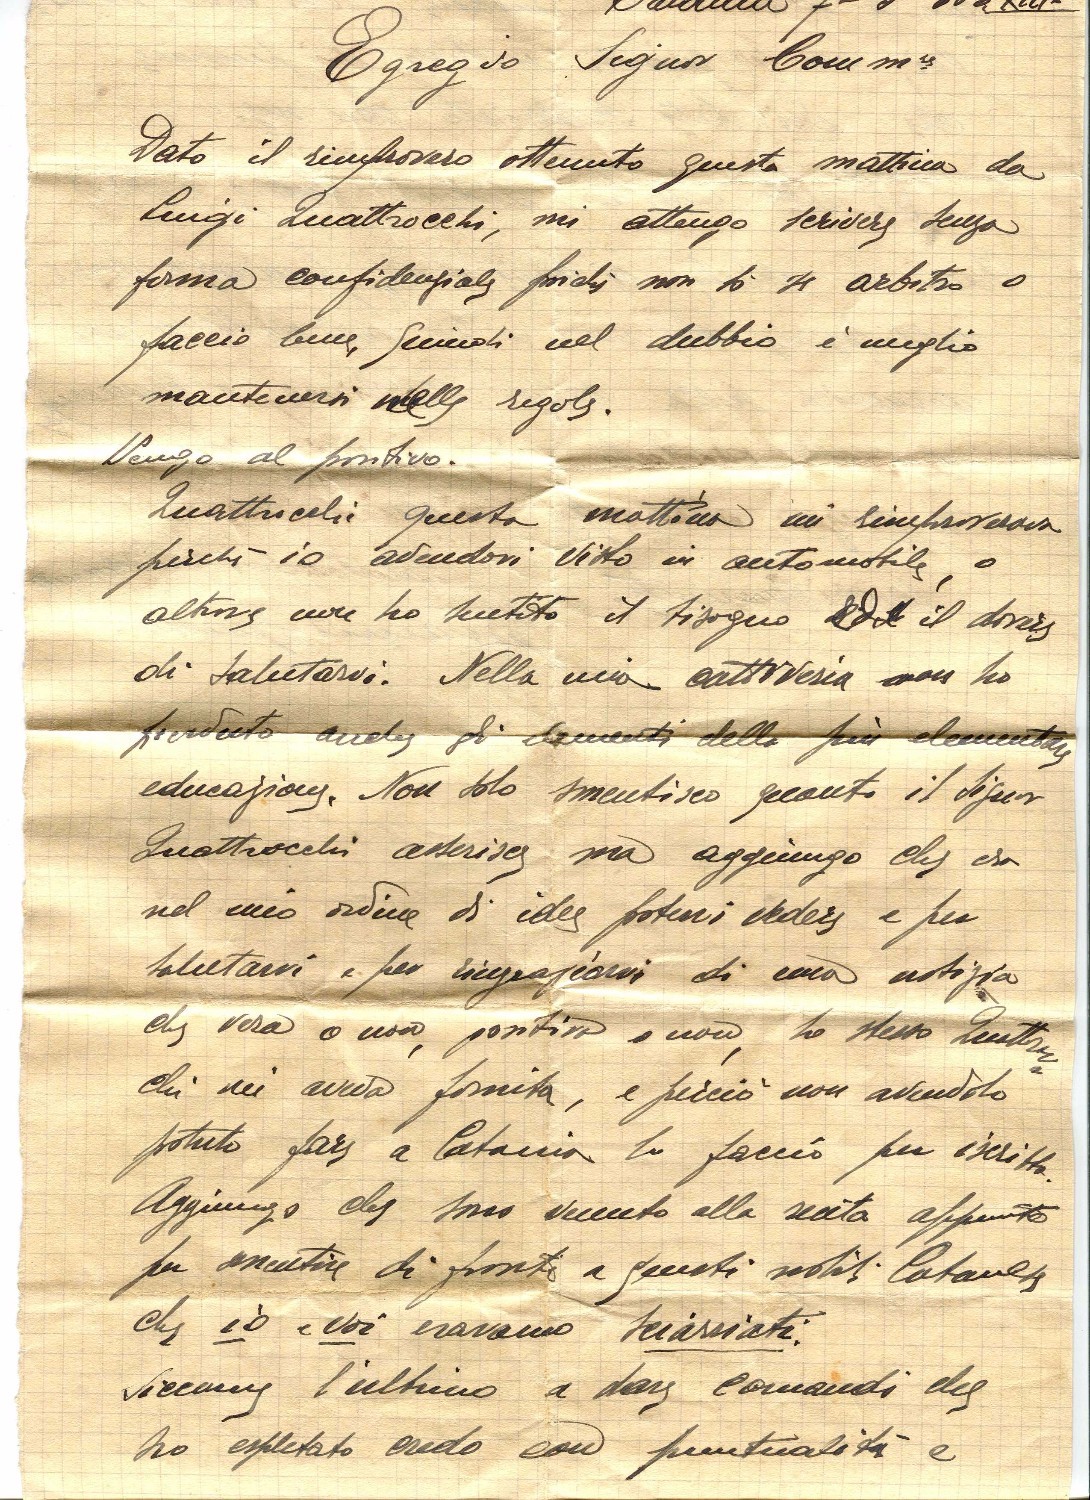 Egregio Signor Comm.re
Dato il rimprovero ottenuto questa mattina da
Luigi Quattrocchi, mi attengo scrivere senza
forma confidenziale poiché non so se arbitro o
faccio bene, quindi nel dubbio è meglio
mantenersi nelle regole.
Vengo al positivo.
Quattrocchi questa mattina mi rimproverava
perché io avendovi visto in automobile, o
altrove non ho sentito il bisogno il dovere
di salutarvi. Nella mia cattiveria non ho
perduto anche gli elementi della più elementare
educazione. Non solo smentisco quanto il Signor
Quattrocchi asserisce ma aggiungo che era
nel mio ordine di idee potervi vedere e per
salutarvi e per ringraziarvi di una notizia
che vera o non, positiva o non, lo stesso Quattroc
chi mi aveva fornita, e perciò non avendolo
potuto fare a Catania lo faccio per iscritto.
Aggiungo che sono venuto alla recita appunto
per smentire di fronte a questi nobili Catanesi
che io e voi eravamo sciarriati.
Siccome l'ultimo a dare comandi che
ho espletato credo con puntualità e